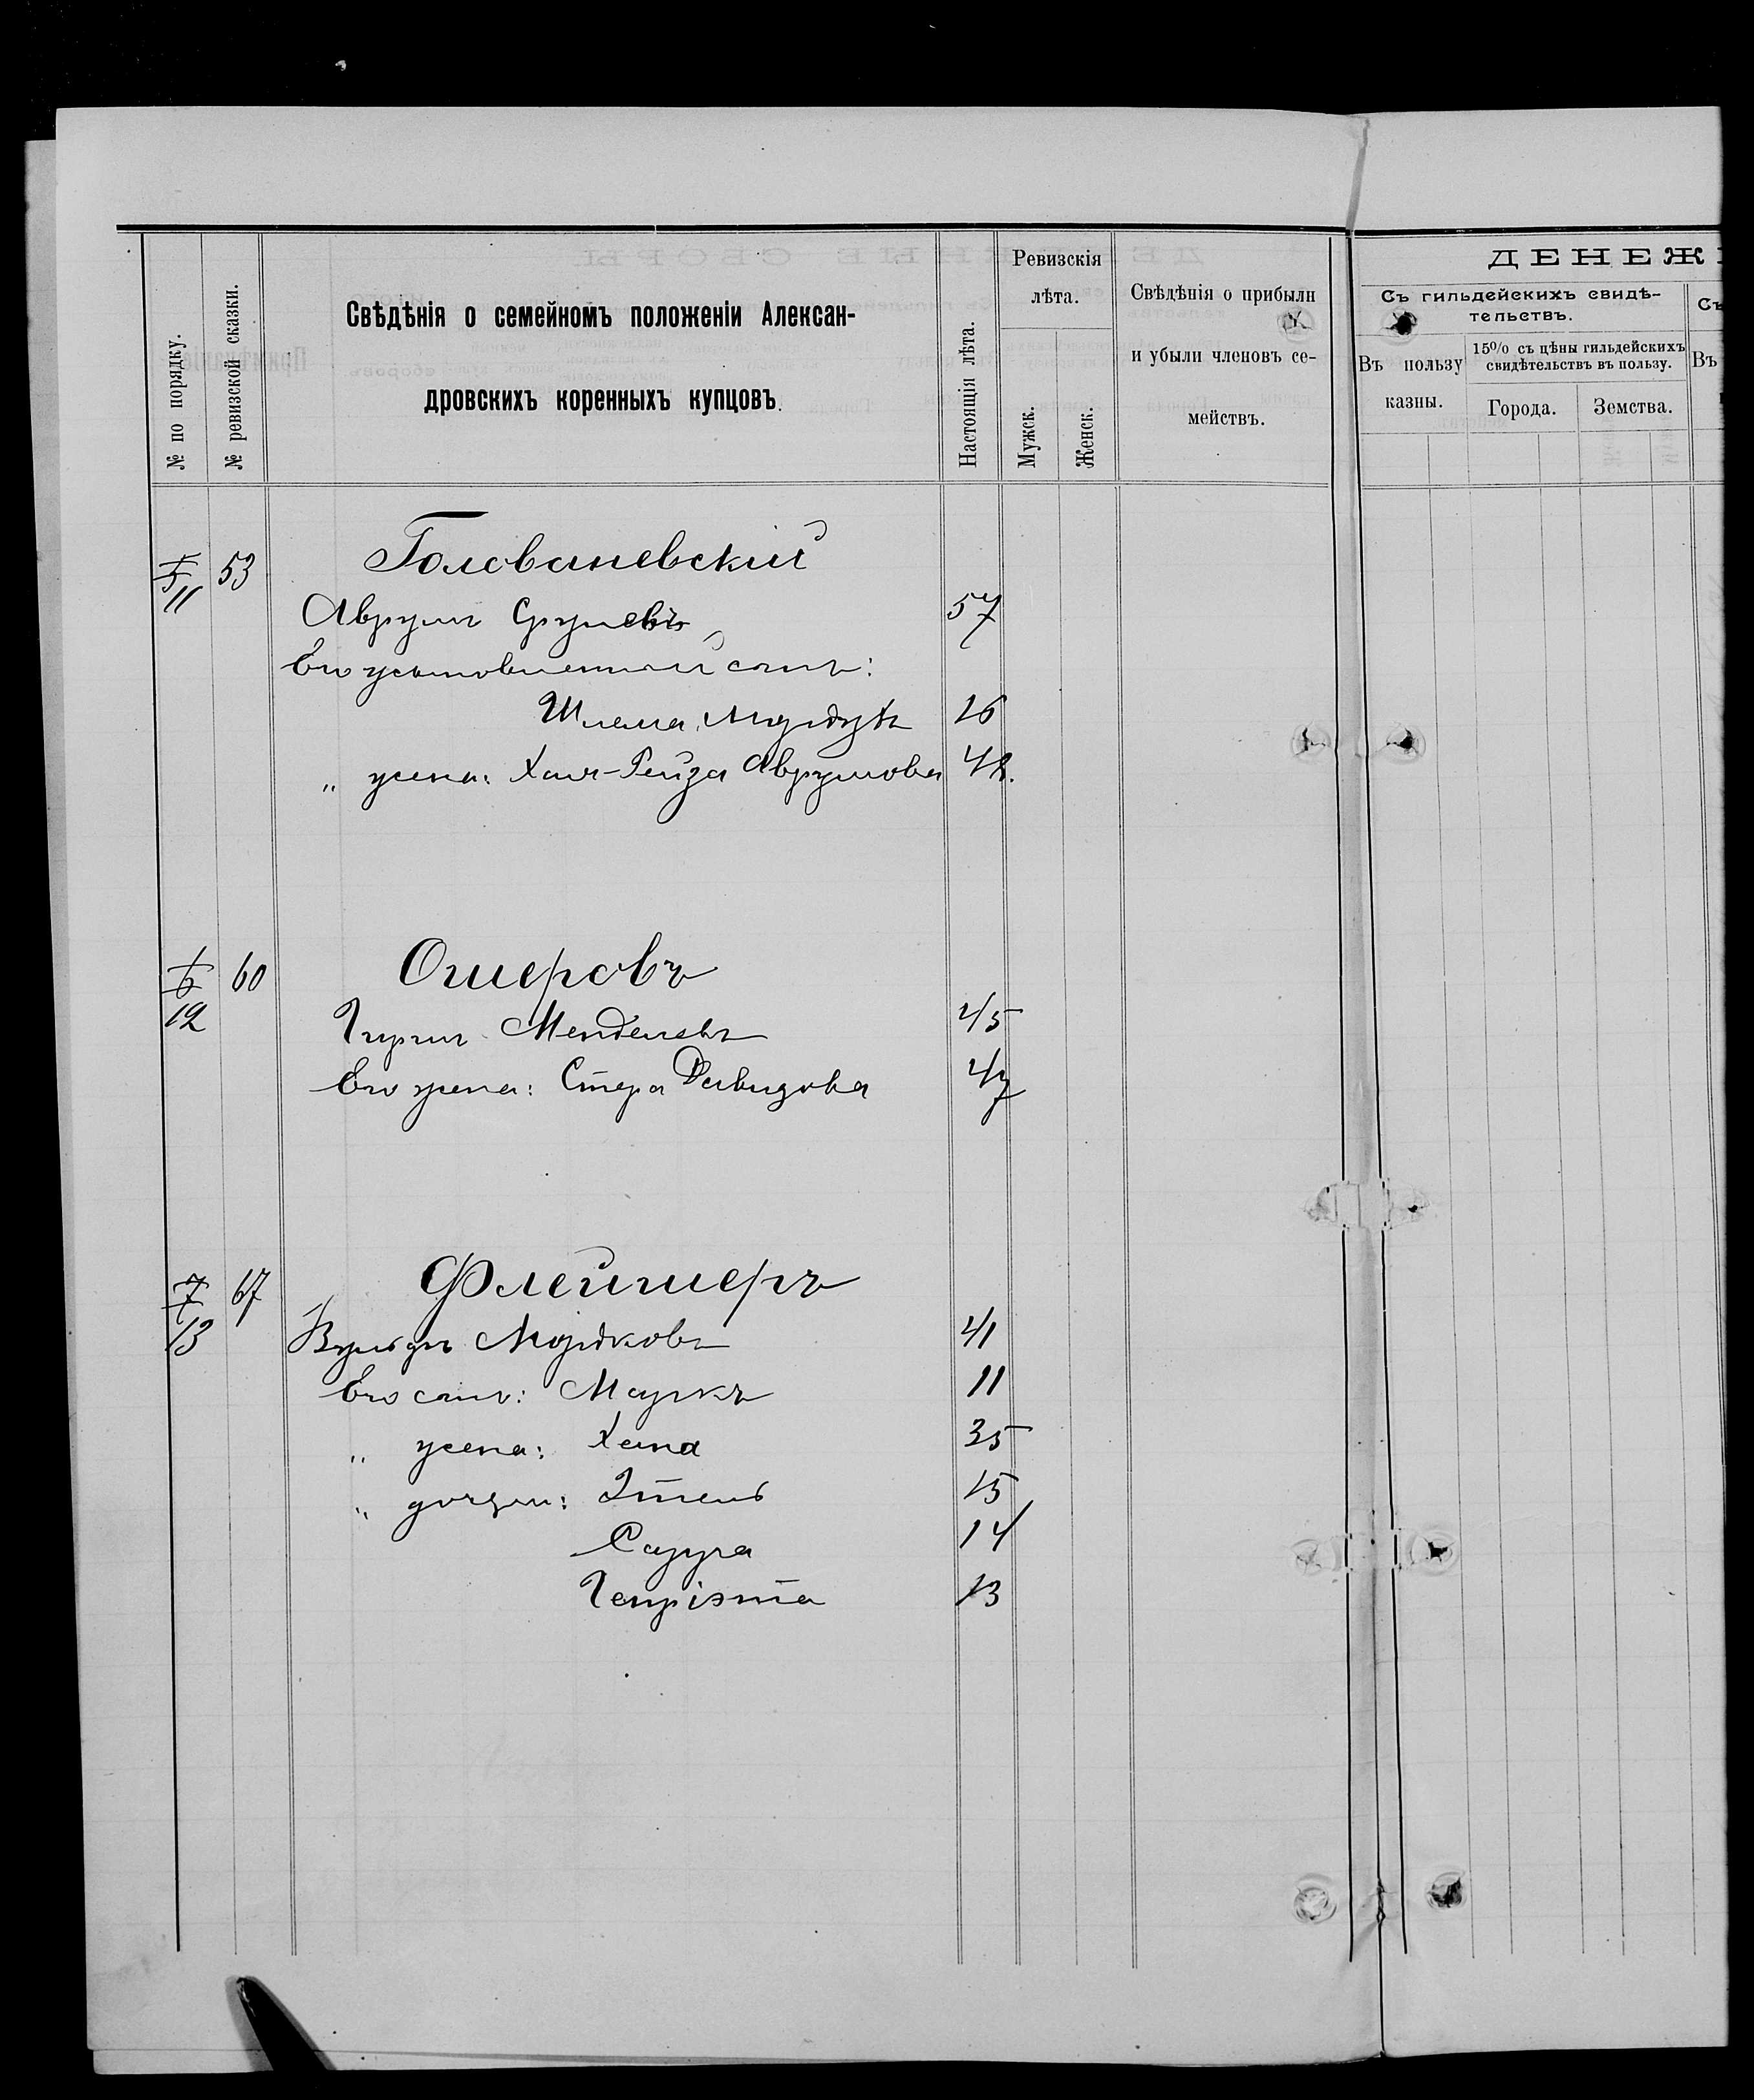 № по порядку.
№ ревизской сказки.
Свѣдѣнія о семейномъ положеніи Алексан-
дровскихъ коренныхъ купцовъ.
Настоящія лѣта.
Ревизскія
лѣта.
Мужск.
Женск.
Свѣдѣнія о прибыли
и убыли членовъ се-
мействъ.
ДЕНЕЖ
Съ гильдейскихъ свидѣ-
тельствъ.
Въ пользу
казны.
15% съ цѣны гильдейскихъ
свидѣтельствъ въ пользу.
Города.
Земства.
Съ
Въ
5 53 Голованевскій
11
Аврумъ Срулевъ 57
Его усыновленный сынъ:
Шлема 26
" жена: Хая-Рейза Аврумова 48.
6 60 Ошеровъ
12
Гиршъ Менделевъ 45
Его жена: Стера Давидова 47
7 67 Флейшеръ
13
Вульфъ Мордковъ 41
Его сынъ: Маркъ 11
" жена: Хана 35
" дочери: Этель 15
Сарра 14
Генріэтта 13